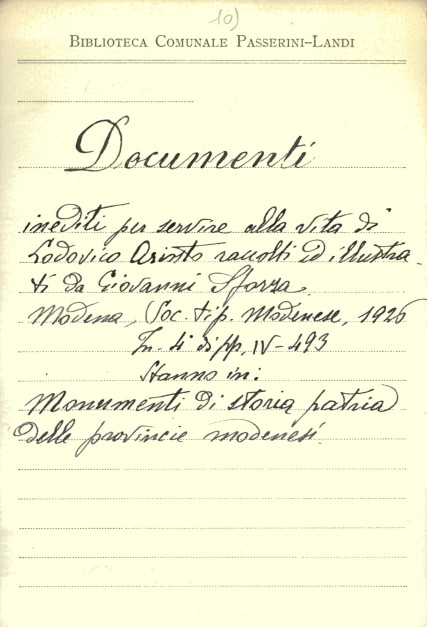 10)
BIBLIOTECA COMUNALE PASSERINI-LANDI
Documenti
inediti per servire alla vita di
Lodovico Ariosto raccolti ed illustra-
ti da Giovanni Sforza
Modena, Soc. tip. Modenese, 1926
In 4° di pp, IV-493
Stanno in:
Monumenti di storia patria
delle provincie modenesi.